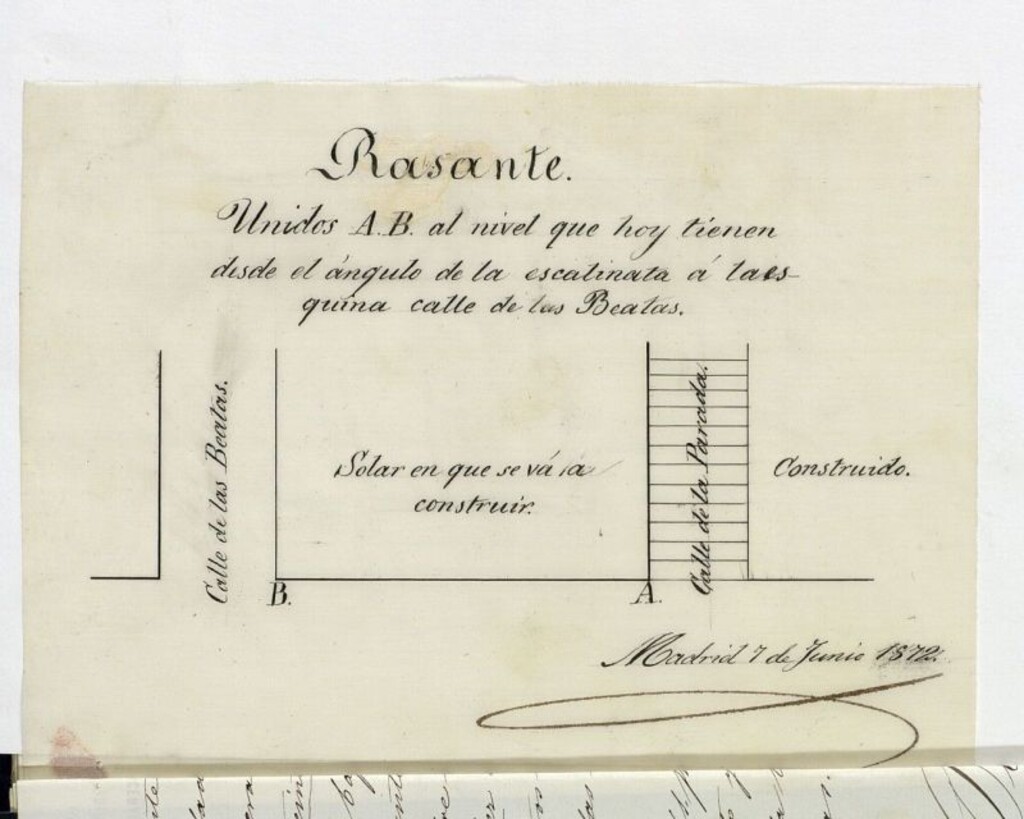 Rasante.
Unidos A.B. al nivel que hoy tienen
desde el ángulo de la escalinata á la es-
quina calle de las Beatas.
Calle de las Beatas.
Solar en que se vá á
construir.
Calle de la Parada.
Construido.
B.
A.
Madrid 7 de Junio 1872.